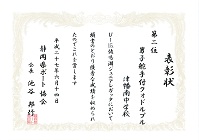 表彰状
第二位
男子舵手付フォドルプル
津幡南中学校
頭書のとおり優秀な成績を収められ
たのでこれを賞します
平成二十七年六月十四日
静岡県ボート協会
会長